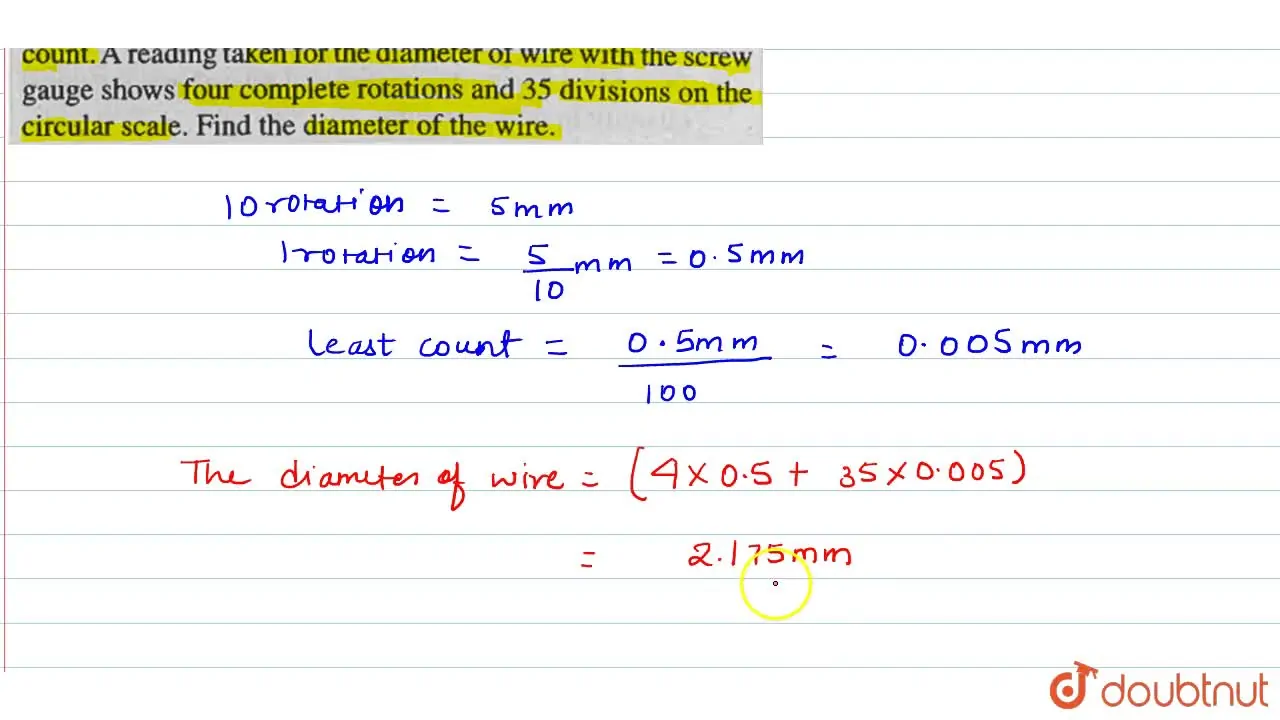 count. A reading taken for the diameter of wire with the screw
gauge shows four complete rotations and 35 divisions on the
circular scale. Find the diameter of the wire.
10 rotation = 5mm
1 rotation = 5/10 mm = 0.5mm
Least count = 0.5mm/100 = 0.005mm
The diameter of wire = (4×0.5 + 35×0.005)
= 2.175mm
doubtnut